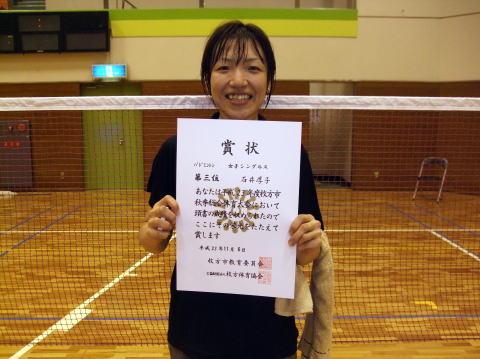 賞状
バドミントン 女子シングルス
第三位 石井孝子
あなたは平成23年度枚方市
秋季総合体育大会において
頭書の成績を収められたので
ここにその栄光をたたえて
賞します
平成23年11月6日
枚方市教育委員会
枚方体育協会